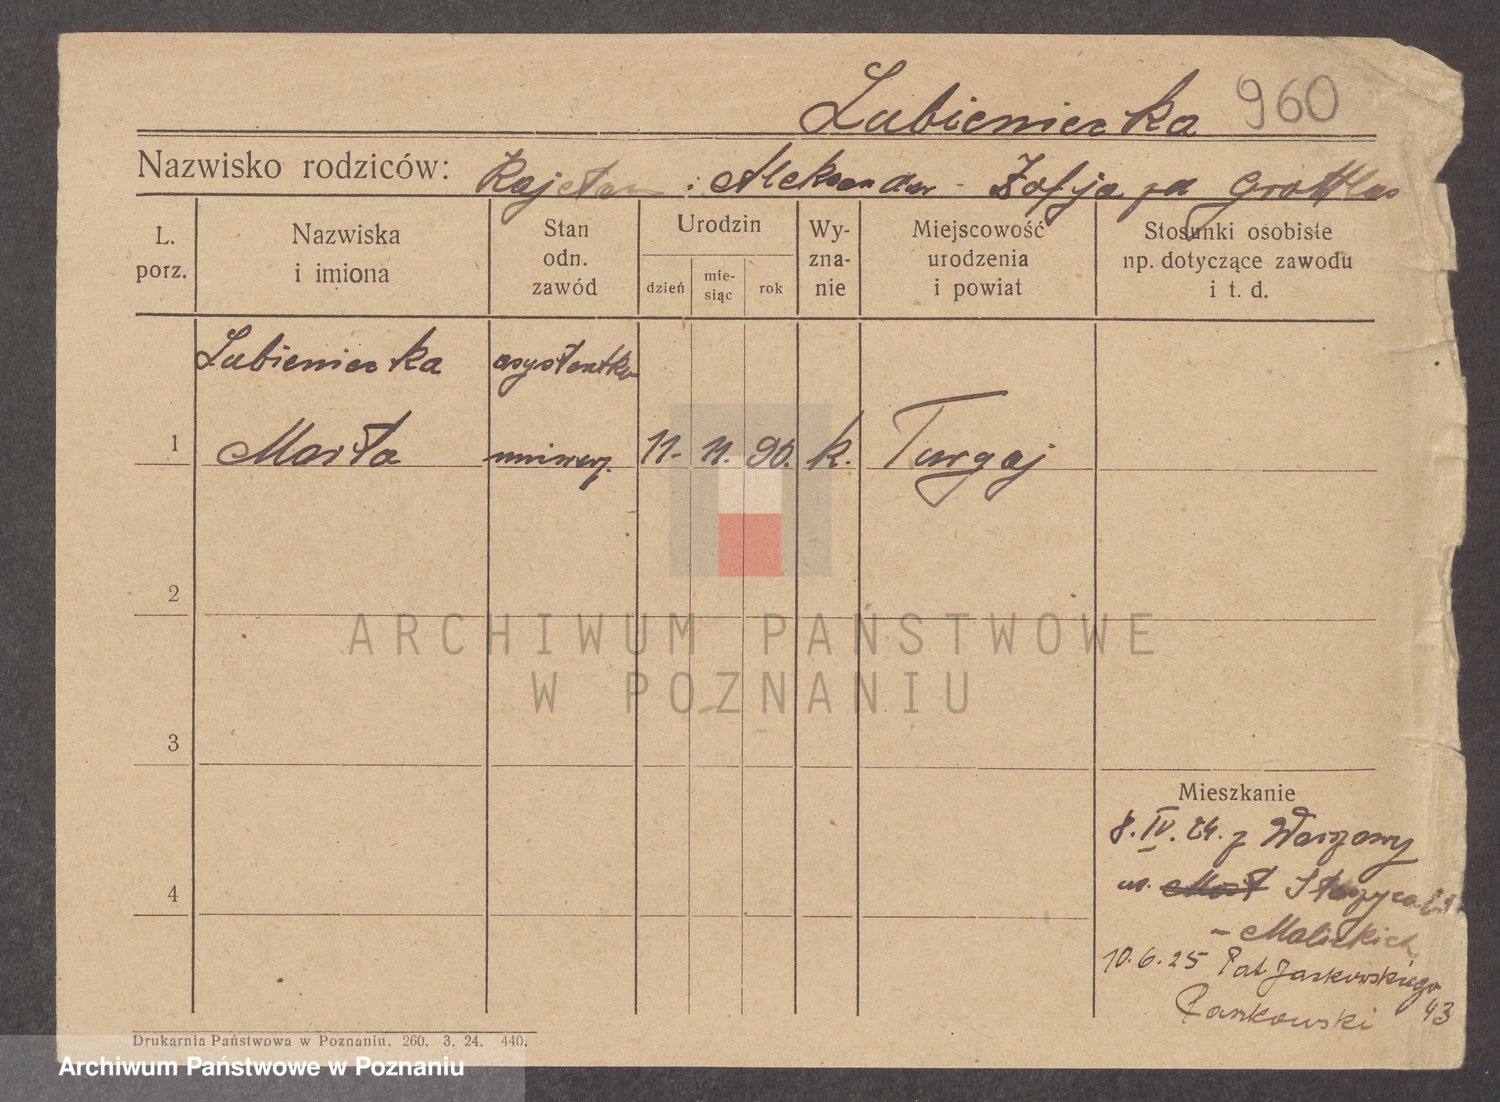 Lubieniecka 960
Nazwisko rodziców: Kajetan : Aleksander - Zofja zd Grottus
L. porz.
Nazwiska i imiona
Stan odn. zawód
Urodzin
dzień
mie-siąc
rok
Wy-zna-nie
Miejscowość urodzenia i powiat
Stosunki osobiste np. dotyczące zawodu i t. d.
Lubieniecka asystentka
1 Marta uniwerz. 11. 11. 90. k. Turgaj
2
ARCHIWUM PAŃSTWOWE
W POZNANIU
3
Mieszkanie
8. IV. 24. z Warszawy
4
Małeckich
10.6.25 Jackowskiego
43
Pankowski
Drukarnia Państwowa w Poznaniu. 260. 3. 24. 440.
Archiwum Państwowe w Poznaniu